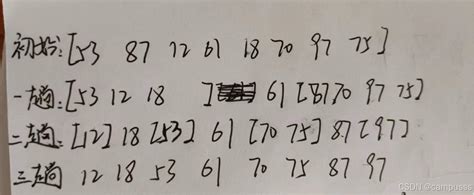 初始:[53 87 12 61 18 70 97 75]
一趟:[53 12 18 ] 61 [87 70 97 75]
二趟:[12] 18 [53] 61 [70 75] 87 [97]
三趟 12 18 53 61 70 75 87 97
CSDN @campusee